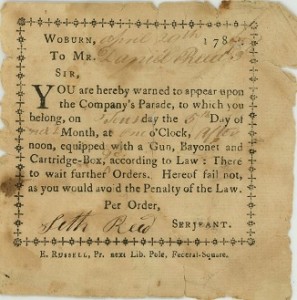 WOBURN, April 178
TO MR. Daniel Reed
SIR,
YOU are hereby warned to appear upon
the Company's Parade, to which you
belong, on Tues day the Day of
Month, at one o'Clock, after
noon, equipped with a Gun, Bayonet and
Cartridge-Box, according to Law: There
to wait further Orders. Hereof fail not,
as you would avoid the Penalty of the Law.
Per Order,
Seth Reed SERJEANT.
E. RUSSELL, Pr. next Lib. Pole, Federal-Square.